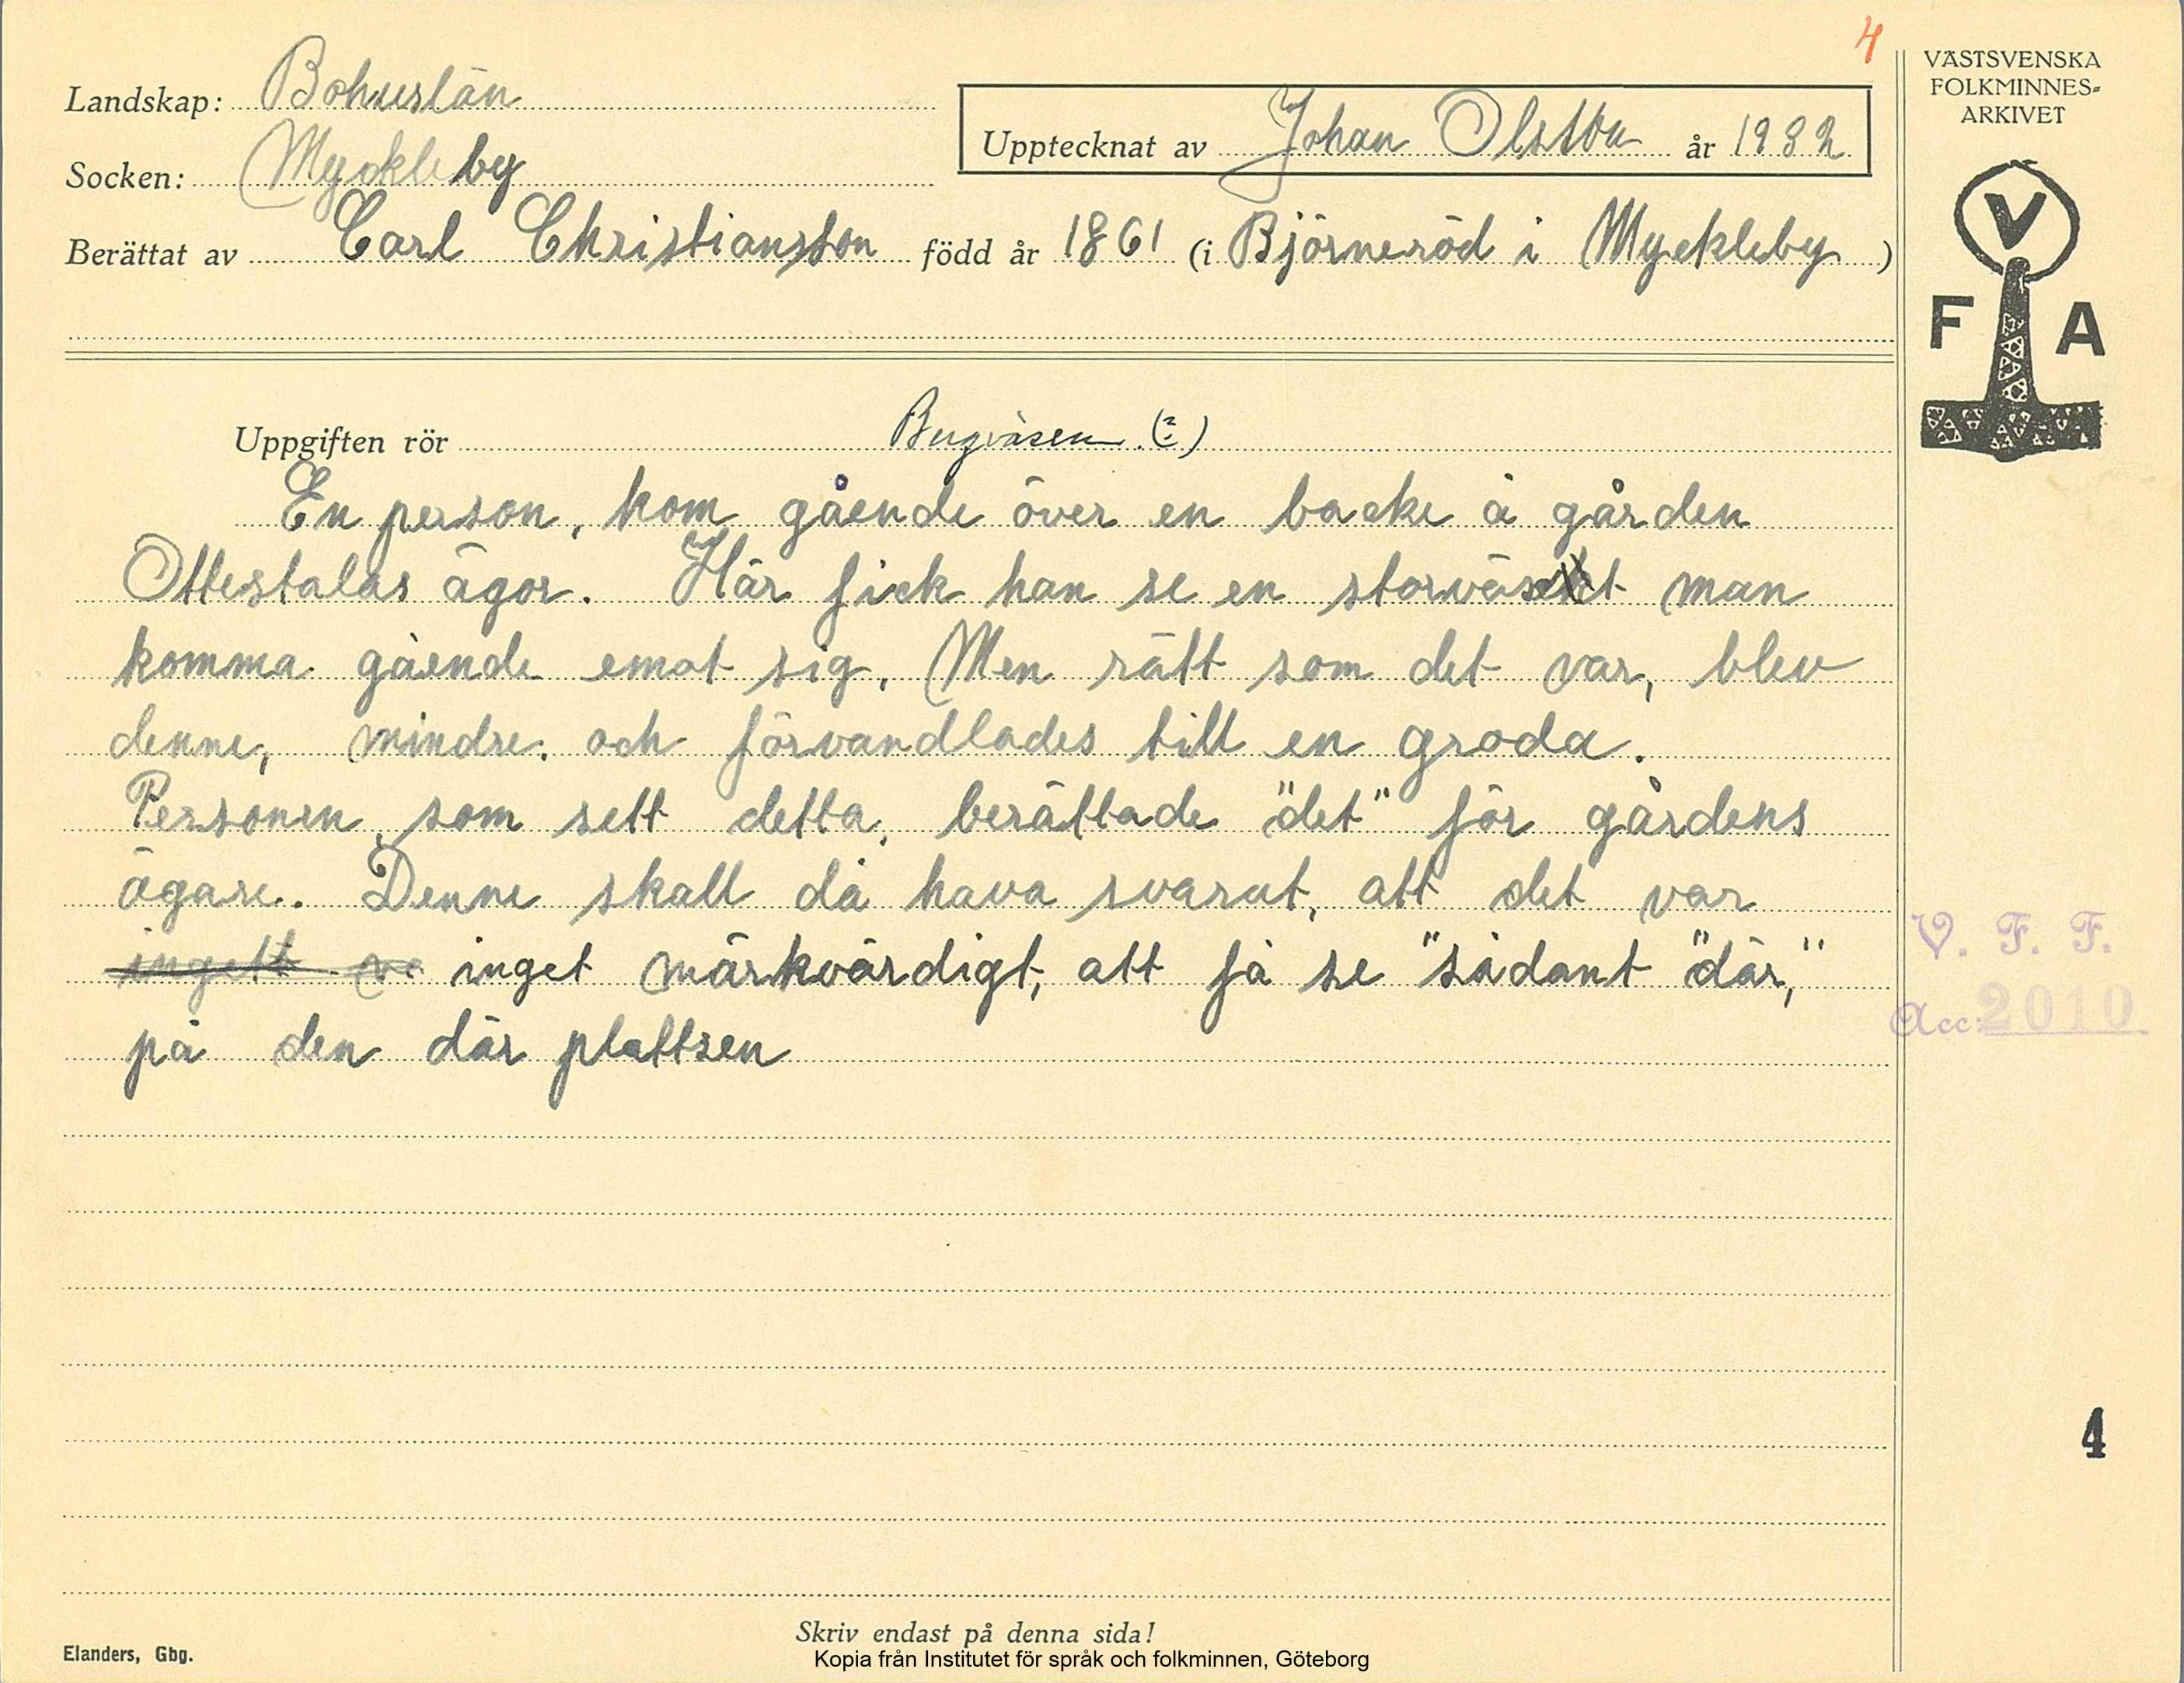 4
VÄSTSVENSKA
FOLKMINNES-
ARKIVET
Landskap: Bohuslän
Upptecknat av Johan Olsson år 1932
Socken: Myckleby
Berättat av Carl Christiansson född år 1861 (i Björneröd i Myckleby)
V
F A
Uppgiften rör (?)
En person, kom gående över en backe å gården
Ottestalas ägor. Här fick han se en storväxt man
komma gående emot sig. Men rätt som det var, blev
denne, mindre. och förvandlades till en groda.
Personen, som sett detta, berättade "det" för gårdens
ägare. Denne skall då hava svarat, att det var
ingett va inget märkvärdigt, att få se "sådant "där,"
på den där plattsen
V. F. F.
Acc: 2010
4
Skriv endast på denna sida!
Elanders, Gbg.
Kopia från Institutet för språk och folkminnen, Göteborg